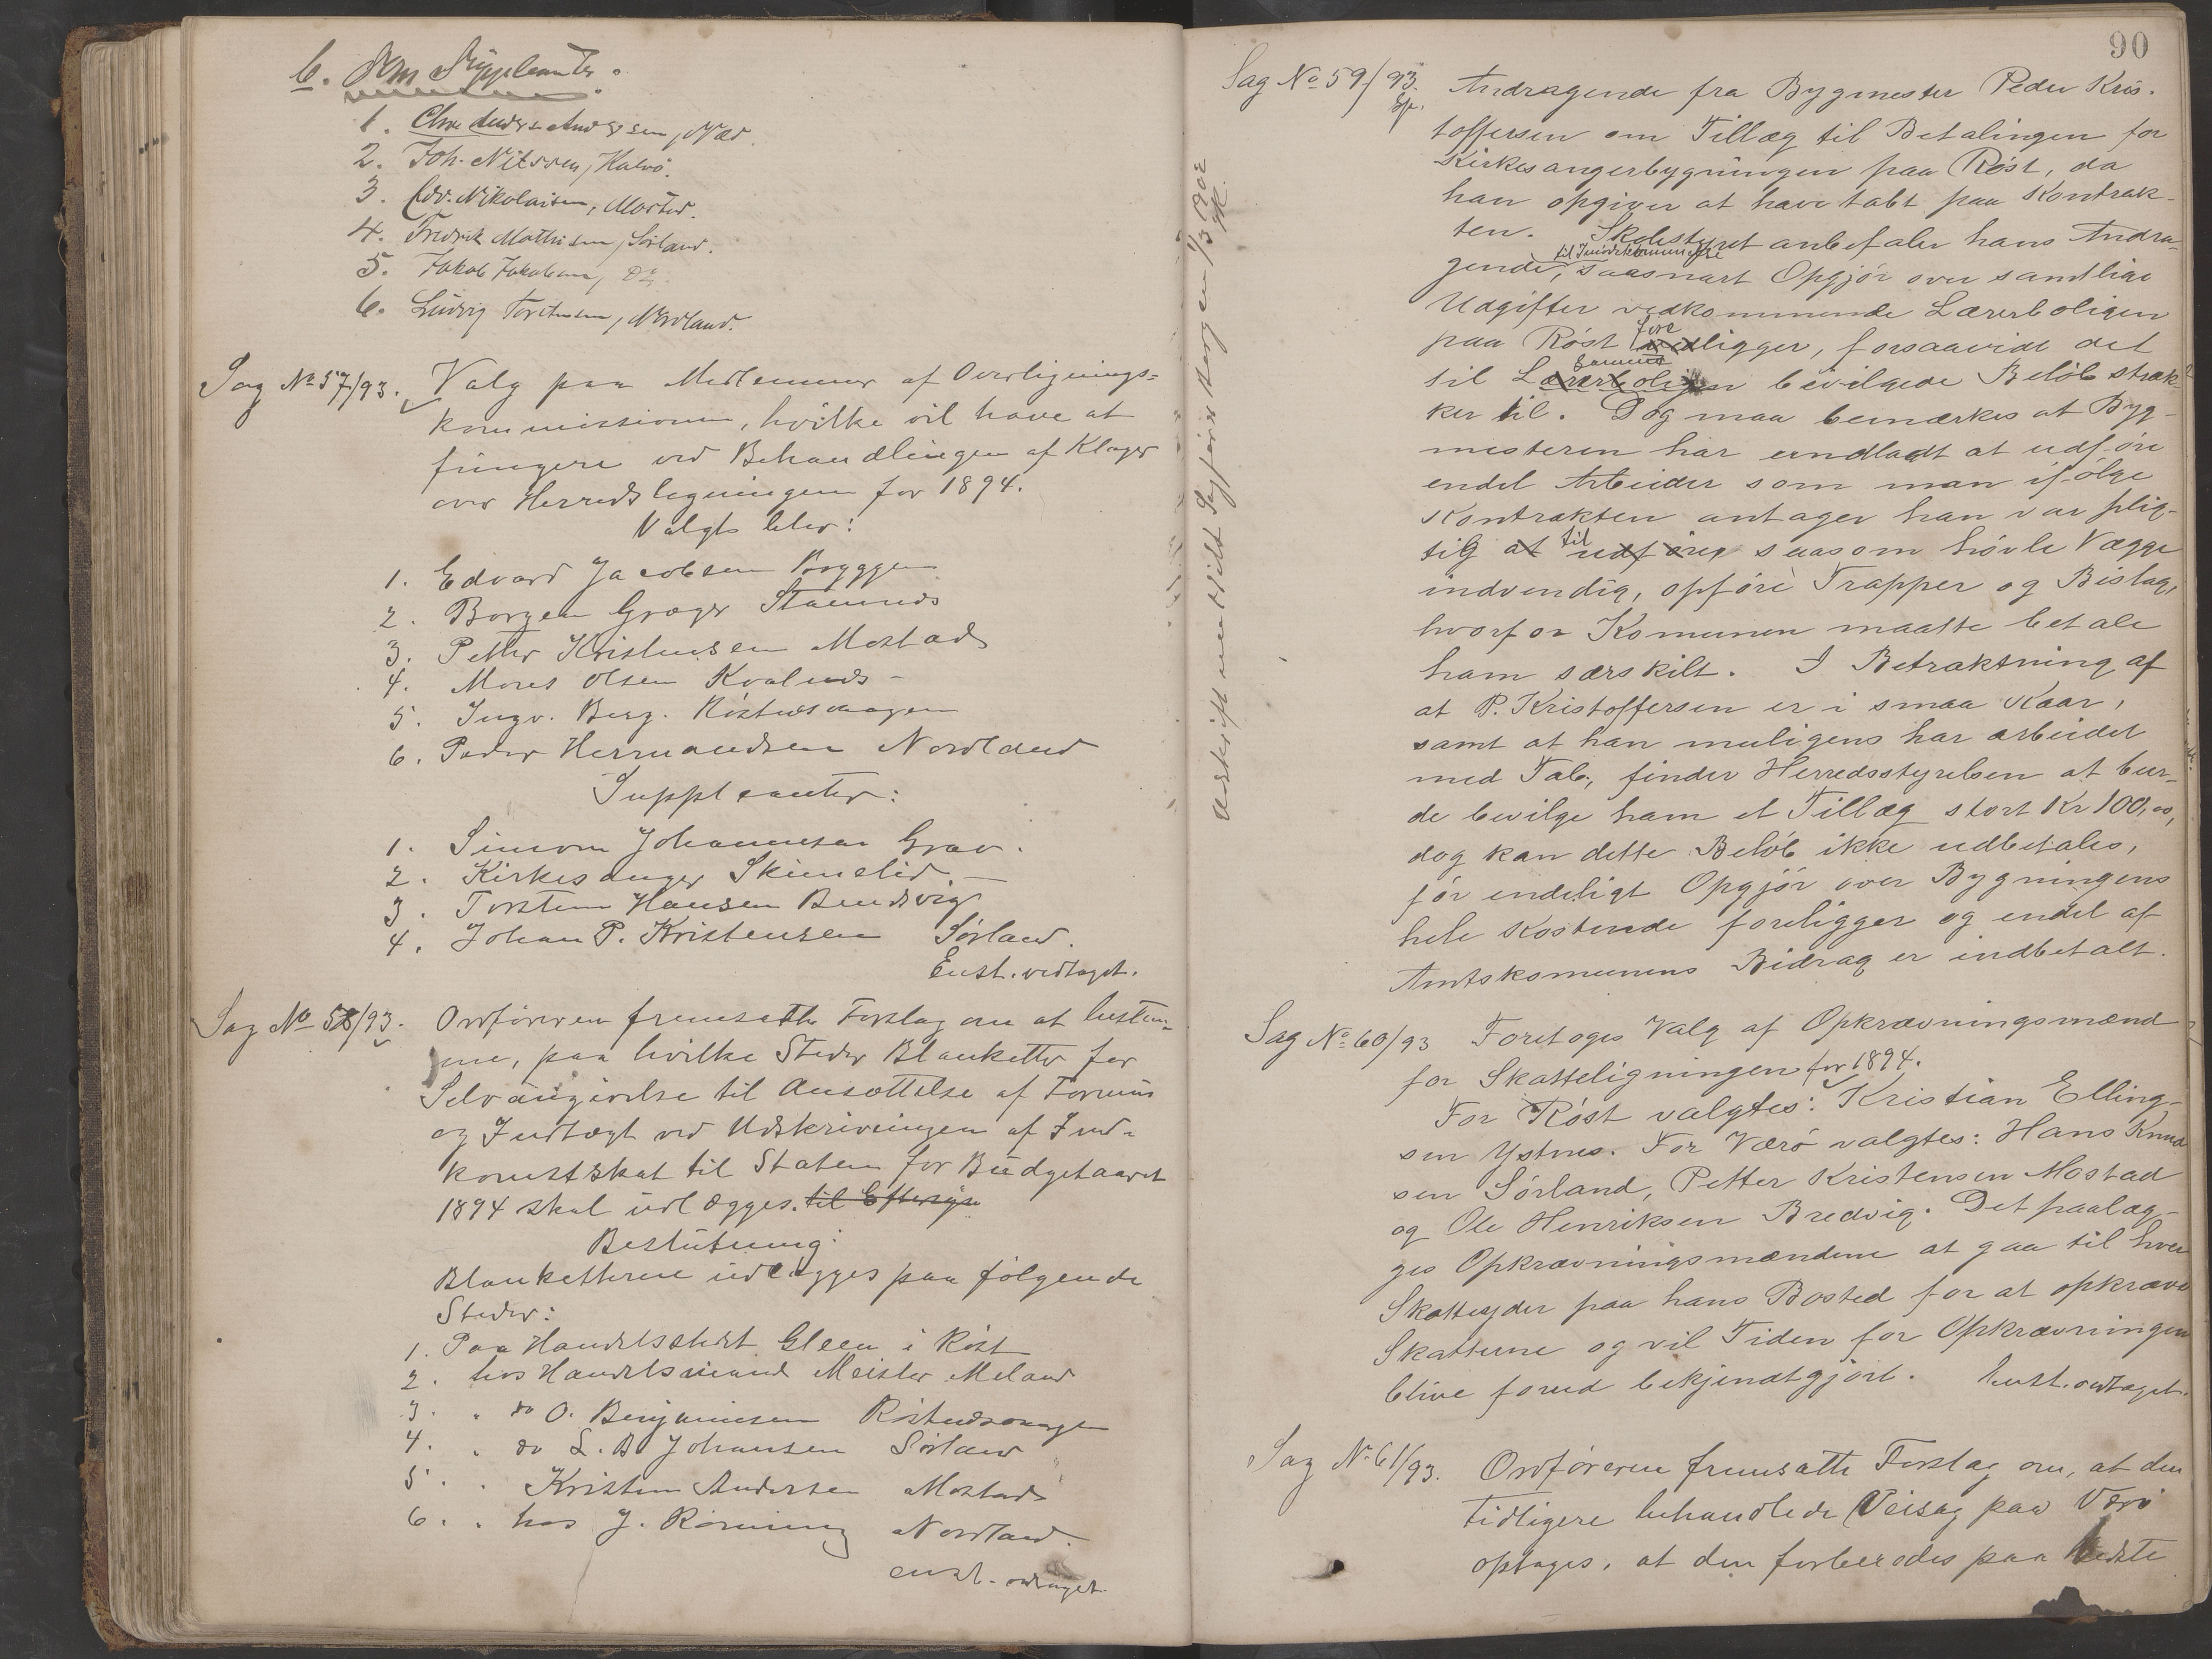 b. Som Suppleanter:
1. Chr. Anders Andersen, Næs.
2. Joh. Nilssen, Kalvö.
3. Edv. Nikolaisen, Mostad.
4. Fredrik Mathisen, Sörland.
5. Jakob Jakobsen, Do.
6. Ludvig Torstensen, Nordland.
Sag No 57/93. Valg paa Medlemmer af Overlignings-
kommissionen, hvilke vil have at
fungere ved Behandlingen af Klager
over Herredsligningen for 1894.
Valgte blev:
1. Edvard Jacobsen Bryggen
2. Borgen Græger Stamnes
3. Petter Kristensen Mostad
4. Mons Olsen Kvalnes -
5. Ingv. Berg. Röstnesvaagen
6. Peder Hermandsen Nordland
Suppleanter:
1. Simon Johannesen Grav.
2. Kirkesanger Skimelid -
3. Torsten Hansen Bredvig
4. Johan P. Kristensen Sörland.
Enst. vedtaget.
Sag No 58/93. Ordföreren fremsatte Forslag om at bestem-
me, paa hvilke Steder Blanketter for
Selvangivelse til Ansættelse af Formue
og Indtægt ved Udskrivningen af Ind-
komstskat til Staten for Budgetaaret
1894 skal udlægges. til Eftersyn
Beslutning:
Blanketterne udlægges paa følgende
Steder:
1. Paa Handelsstedet Gleen i Röst
2. hos Handelsmand Meister Meland
3. " do O. Benjaminsen Röstnesvaagen
4. " do L. B. Johansen Sörland
5. " Kristen Andersen Mostad
6. " hos J. Rönning Nordland.
enst. vedtaget.
90
Sag No 59/93. Andragende fra Bygmester Peder Kris-
toffersen om Tillæg til Betalingen for
Kirkesangerbygningen paa Röst, da
han opgiver at have tabt paa Kontrak-
ten. Skolestyret anbefaler hans Andra-
til Imödekommelse
gende, saasnart Opgjör over samtlige
Udgifter vedkommende Lærerboligen
fore
paa Röst vedligger, forsaavidt det
samme
til Lærerboligen bevilgede Belöb stræk-
ker til. Dog maa bemærkes at Byg-
mesteren har undladt at udföre
endel Arbeider som man ifölge
Kontrakten antager han var plig-
tig at til udföre saasom hövle Vægge
indvendig, opföre Trapper og Bislag,
hvorfor Komunen maatte betale
ham særskilt. I Betraktning af
at P. Kristoffersen er i smaa Kaar,
samt at han muligens har arbeidet
med Tab, finder Herredsstyrelsen at bur-
de bevilge ham et Tillæg stort Kr 100,00,
dog kan dette Belöb ikke udbetales,
för endeligt Opgjör over Bygningens
hele Kostende foreligger og endel af
Amtskomunens Bidrag er indbetalt.
Sag No 60/93 Foretoges Valg af Opkrævningsmænd
for Skatteligningen for 1894.
For Röst valgtes: Kristian Elling-
sen Ystnes. For Værö valgtes: Hans Knud
sen Sörland, Petter Kristensen Mostad
og Ole Henriksen Bredvig. Det paalæg-
ges Opkrævningsmændene at gaa til hver
Skatteyder paa hans Bosted for at opkræve
Skatterne og vil Tiden for Opkrævningen
blive forud bekjendtgjort. Enst. vedtaget.
Sag No 61/93. Ordföreren fremsatte Forslag om, at den
tidligere behandlede Veisag paa Værö
optages, at den forberedes paa bedste